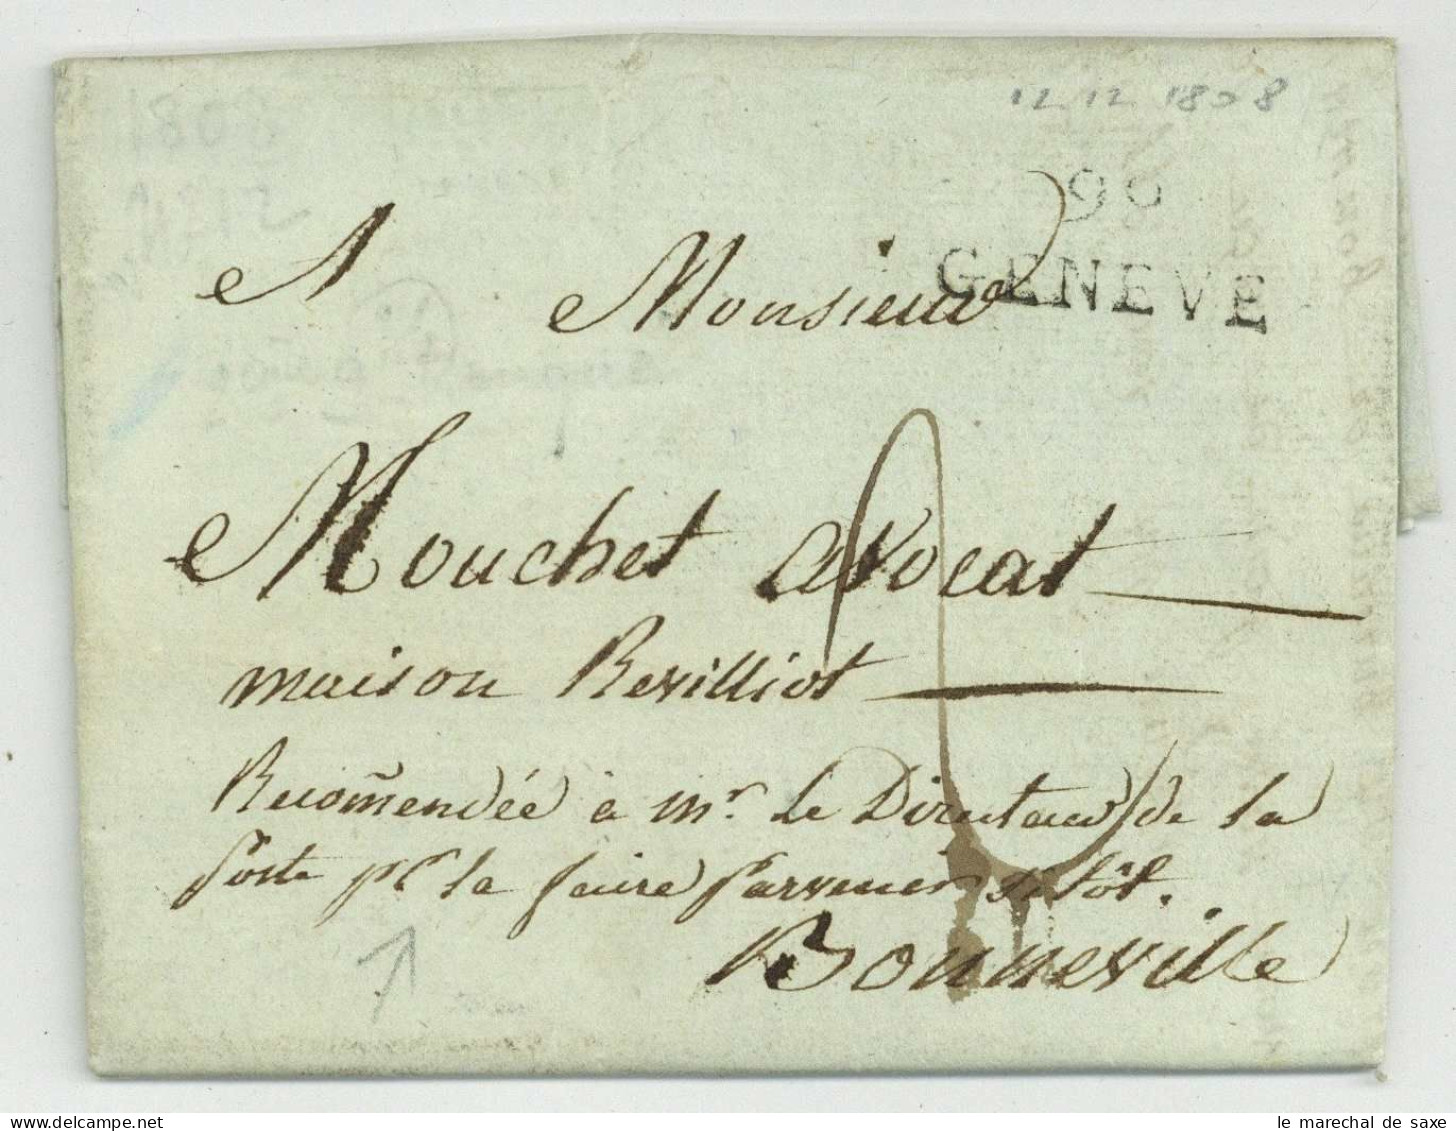 12 12 1808
99
GENEVE
A Monsieur
Mouchet avocat
maison Revilliot
Recom̃endée à mr. le Directeur de la
Poste pr la faire parvenir sitôt.
Bonneville
le marechal de saxe